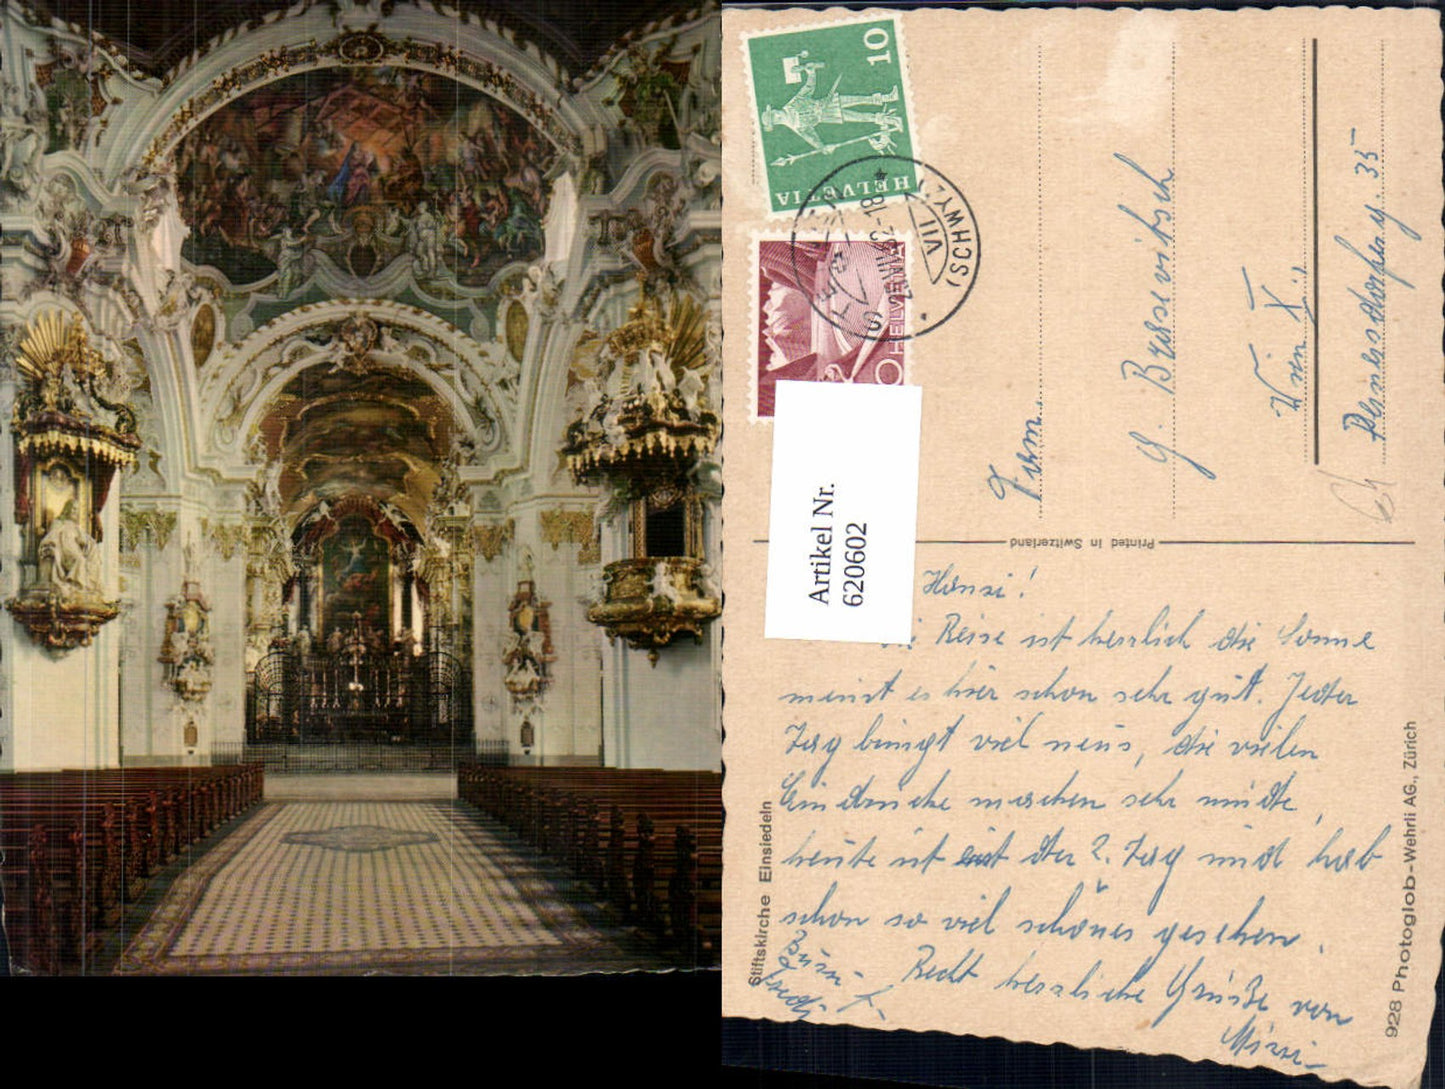 10
HELVETIA
HELVETIA
(SCHWYZ)
VII
Artikel Nr.
620602
Fam.
G. Bresevitsch
Wien X.
Pernersdorferg. 35
Printed in Switzerland
Hansi!
Reise ist herrlich die Sonne
meint es hier schon sehr gut. Jeder
Tag bringt viel neues, die vielen
Eindrücke machen sehr müde,
heute ist erst der 2. Tag und hab
schon so viel schönes gesehen.
Recht herzliche Grüße von
Mizzi
Stiftskirche Einsiedeln
928 Photoglob-Wehrli AG., Zürich